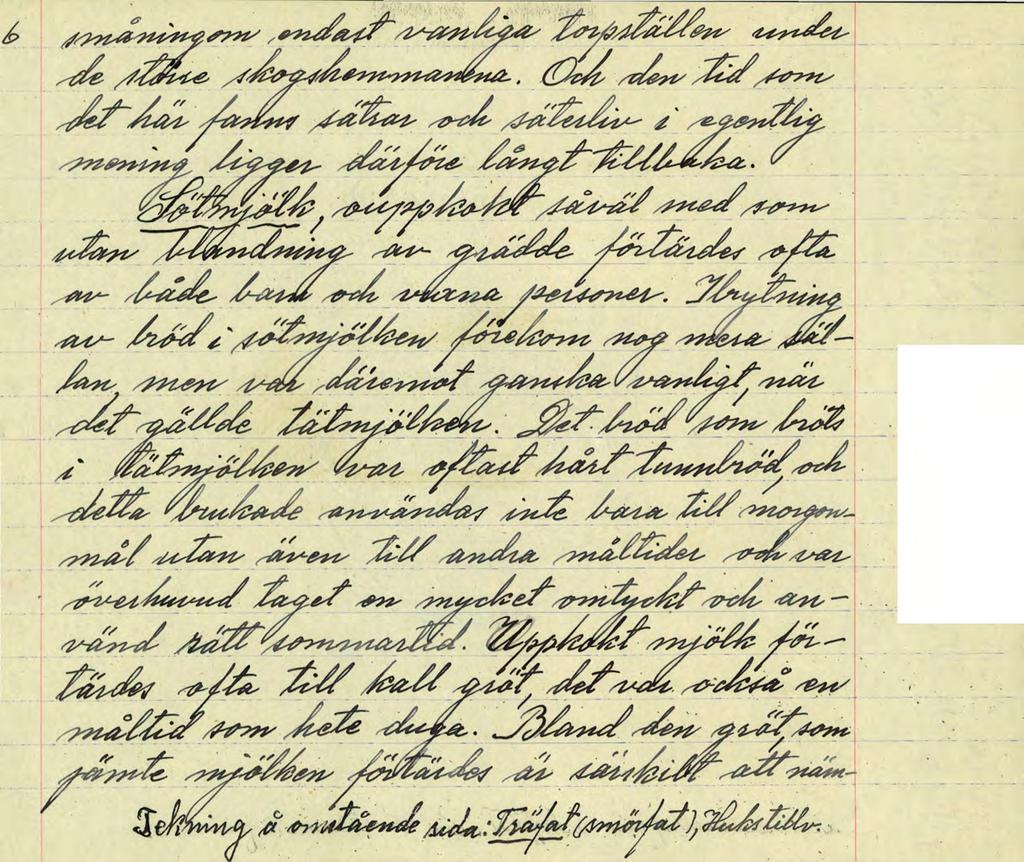 6 småningom endast vanliga torpställen under
de större skogshemmanena. Och den tid som
det här fanns sätrar och säterliv i egentlig
mening ligger därföre långt tillbaka.
Sötmjölk, ouppkokt såväl med som
utan blandning av grädde förtärdes ofta
av både barn och vuxna personer. Ibrytning
av bröd i sötmjölken förekom nog mera säl-
lan, men var däremot ganska vanligt, när
det gällde tätmjölken. Det bröd som bröts
i tätmjölken var oftast hårt tunnbröd, och
detta brukade användas inte bara till morgon-
mål utan även till andra måltider och var
överhuvud taget en mycket omtyckt och an-
vänd rätt sommartid. Uppkokt mjölk för-
tärdes ofta till kall gröt, det var också en
måltid som hete duga. Bland den gröt, som
jämte mjölken förtärdes är särskilt att näm-
Tekning å omstående sida: Träfat (smörfat), Huks tillv.